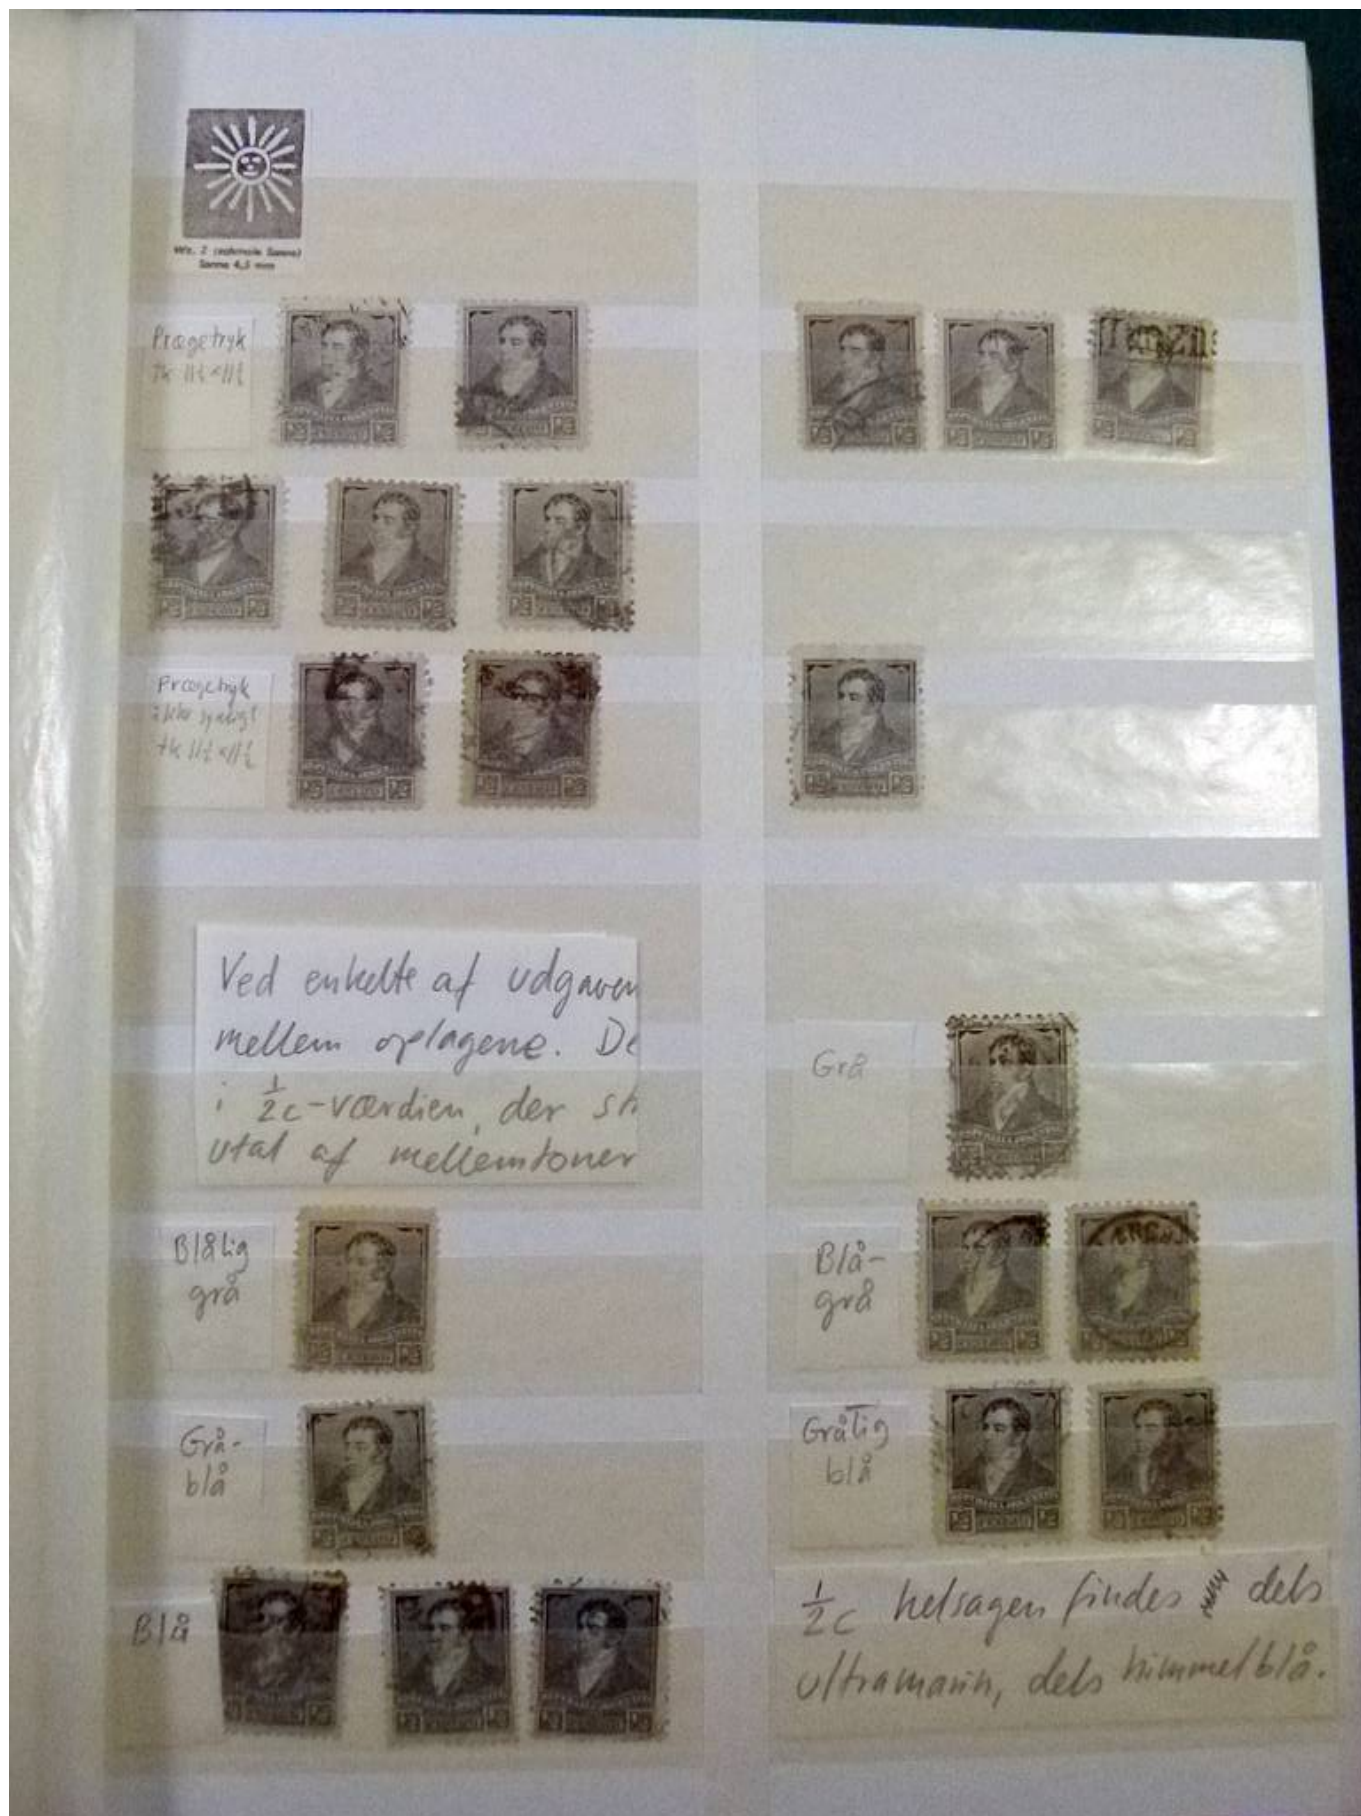 Wz. 2 (schmale Sonne)
Sonne 4,5 mm
Prægetryk
tk 11½ × 11½
Prægetryk
ikke synligt
tk 11½ × 11½
Ved enkelte af udgaven
mellem oplagene. De
i ½c-værdien, der
utal af mellemtoner
Grå
Blålig
grå
Blå-
grå
Grå-
blå
Grålig
blå
Blå
½c helsagen findes dels
ultramarin, dels himmelblå.